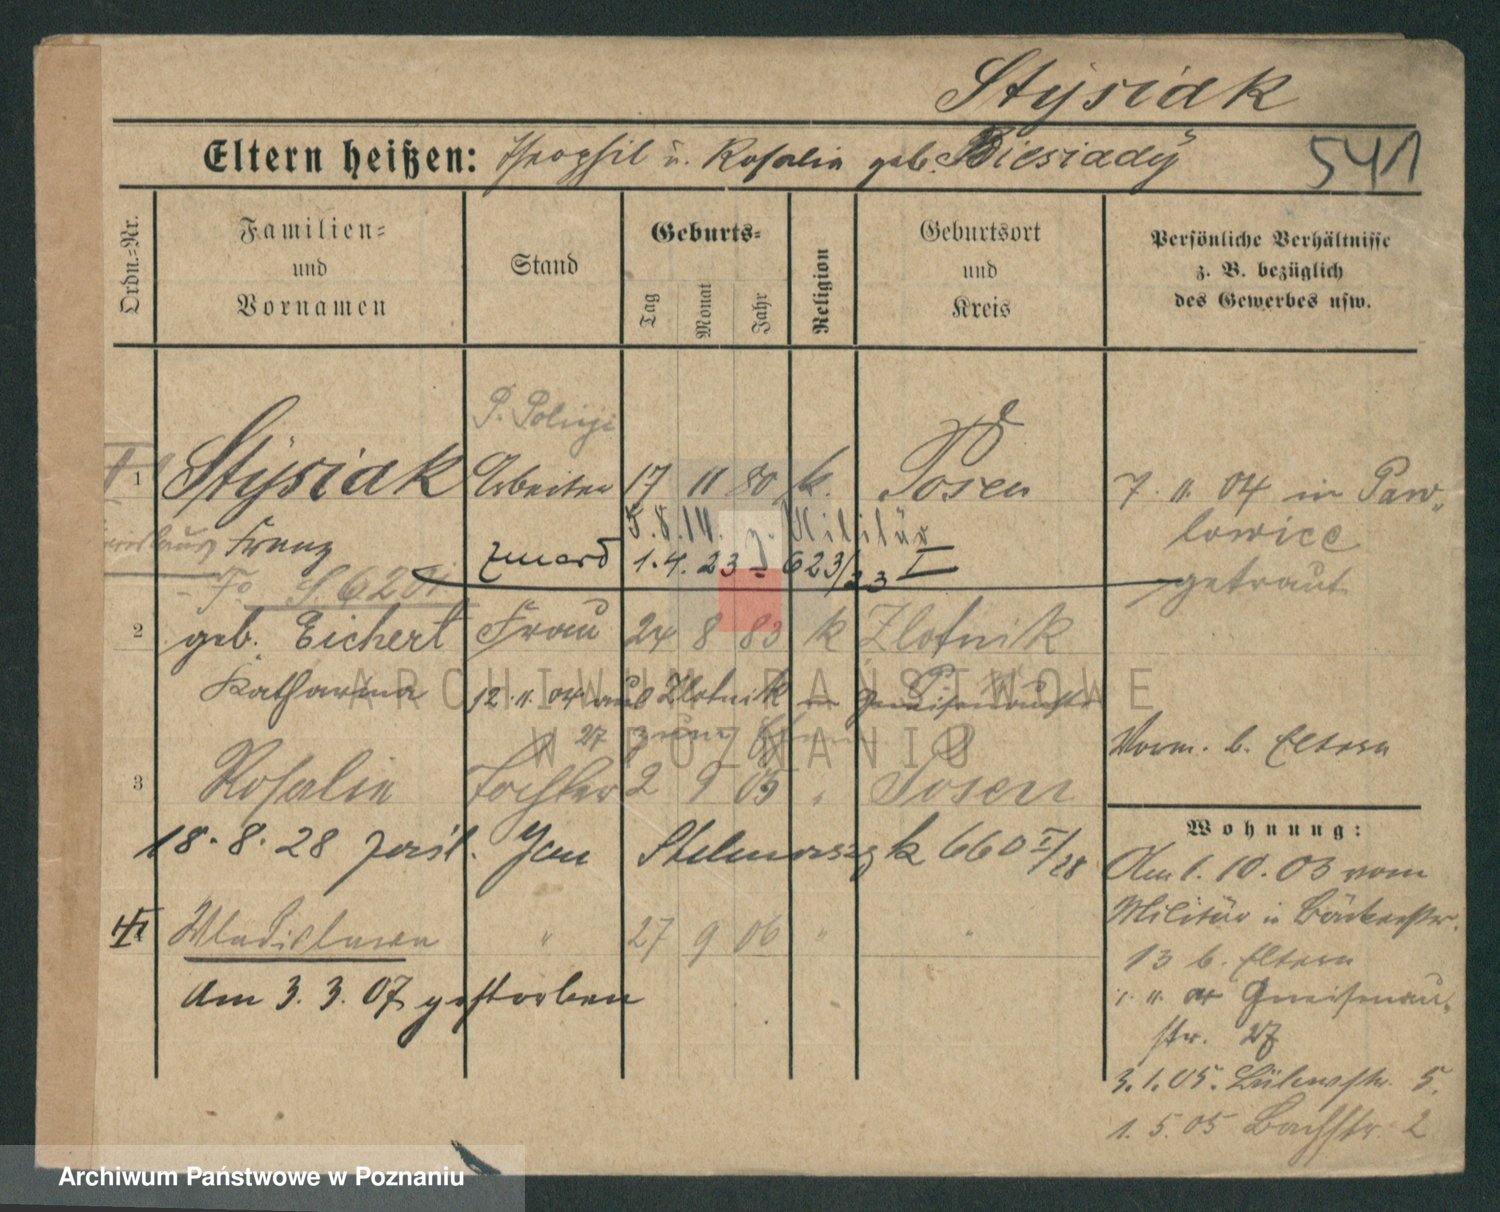 Stysiak
Eltern heißen: Theophil u. Rosalia geb. Biesiady
541
Ordn.-Nr.
Familien- und Vornamen
Stand
Geburts-
Tag
Monat
Jahr
Religion
Geburtsort und Kreis
Persönliche Verhältnisse
z. B. bezüglich
des Gewerbes usw.
P. Policji
1 Stysiak Arbeiter 17 11 80 k. Posen 7. 11. 04 in Paw-
lowice
getraut
5.8.14. z. Militär
Franz zmarł 1.4.23 623/23 I
2 geb. Eichert Frau 24 8 83 k Zlotnik
Katharina 12.11.04 aus Zlotnik in Gneisenaustr
27
Vorm. b. Eltern
3 Rosalie Tochter 2 9 05 " Posen
18.8.28 Jan Stelmaszyk 660 I/28
4 Wladislawa " 27 9 06 " "
Am 3. 3. 07 gestorben
Wohnung:
Am 1. 10. 03 vom
Militär in Bäckerstr.
13 b. Eltern
Gneisenau-
str. 27
3.1.05. Bülowstr. 5.
1. 5. 05 Bachstr. 2
ARCHIWUM PAŃSTWOWE
W POZNANIU
Archiwum Państwowe w Poznaniu